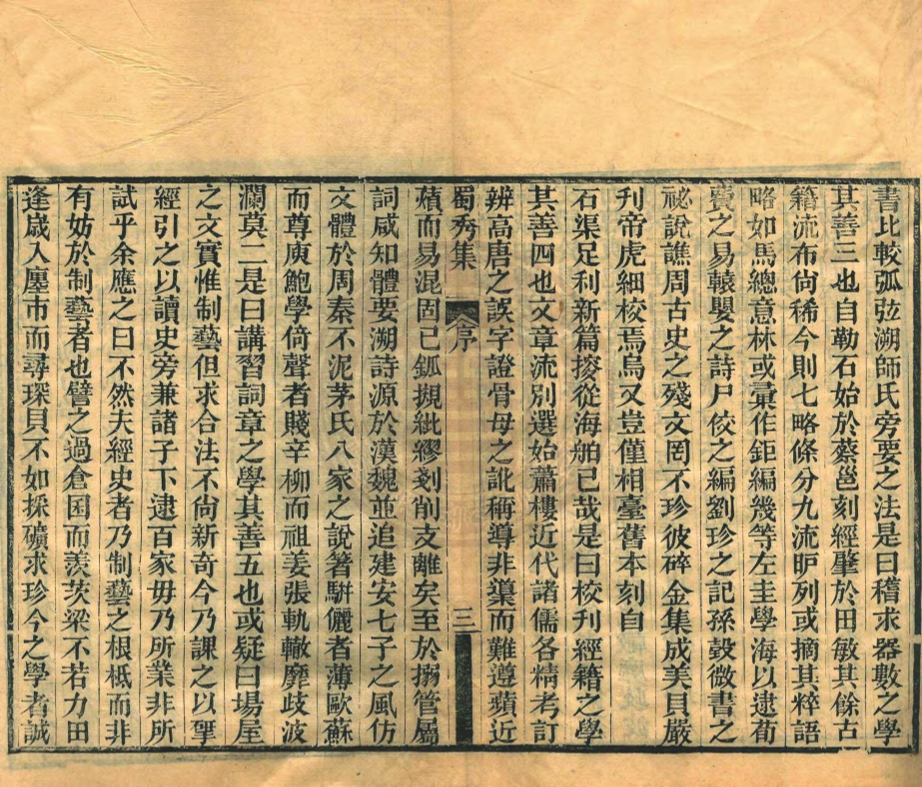 書比較弧弦溯師氏旁要之法是曰稽求器數之學
其善三也自勒石始於蔡邕刻經肇於田敏其餘古
籍流布尙稀今則七略條分九流眆列或摘其粹語
略如馬總意林或彙作鉅編幾等左圭學海以逮荀
賡之易轅嬰之詩尸佼之編劉珍之記孫瑴微書之
祕說譙周古史之殘文罔不珍彼碎金集成美貝嚴
刊帝虎細校焉烏又豈僅相臺舊本刻自
石渠足利新篇搜從海舶已哉是曰校刊經籍之學
其善四也文章流別選始蕭樓近代諸儒各精考訂
辨高唐之誤字證骨母之訛稱導非䆃而難遵蘋近
蜀秀集 序 三
薠而易混固已釽摫紕繆剗削支離矣至於搦管屬
詞咸知體要溯詩源於漢魏並追建安七子之風仿
文體於周秦不泥茅氏八家之說箸駢儷者薄歐蘇
而尊庾鮑學倚聲者賤辛柳而祖姜張軌轍靡歧波
瀾莫二是曰講習詞章之學其善五也或疑曰場屋
之文實惟制藝但求合法不尙新奇今乃課之以羣
經引之以讀史旁兼諸子下逮百家毋乃所業非所
試乎余應之曰不然夫經史者乃制藝之根柢而非
有妨於制藝者也譬之過倉囷而羨茨梁不若力田
逢歲入廛市而尋琛貝不如採礦求珍今之學者誠